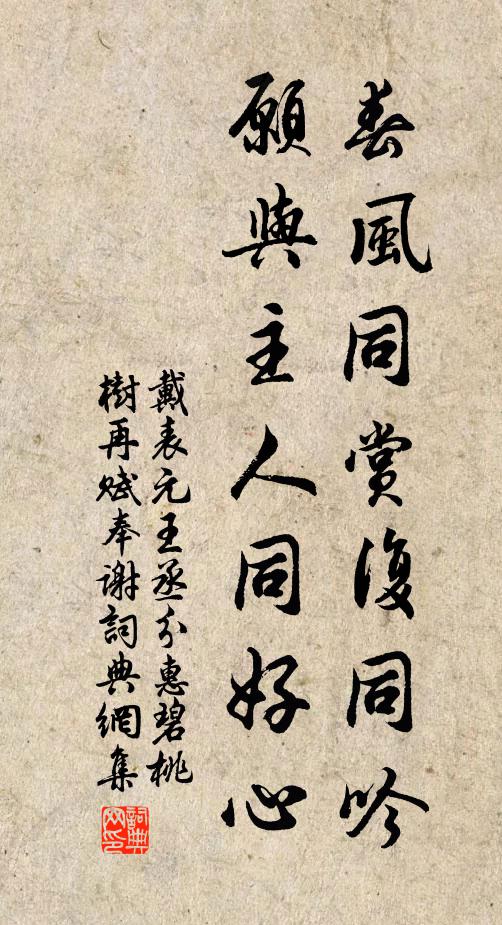 春風同賞復同吟
願與主人同好心
戴表元王丞分惠碧桃
樹再賦奉謝詞典網集
詞典網印